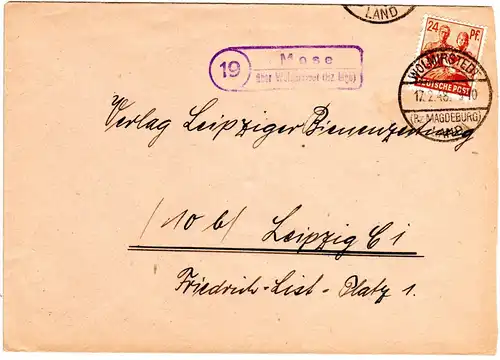 LAND
24 PF.
DEUTSCHE POST
WOLMIRSTEDT
17.2.48.
(Bz. MAGDEBURG)
LAND
19
Mose
über Wolmirstedt (Bz. Mgb)
Verlag Leipziger Bienenzeitung
(10 b) Leipzig C 1
Friedrich-List-Platz 1.